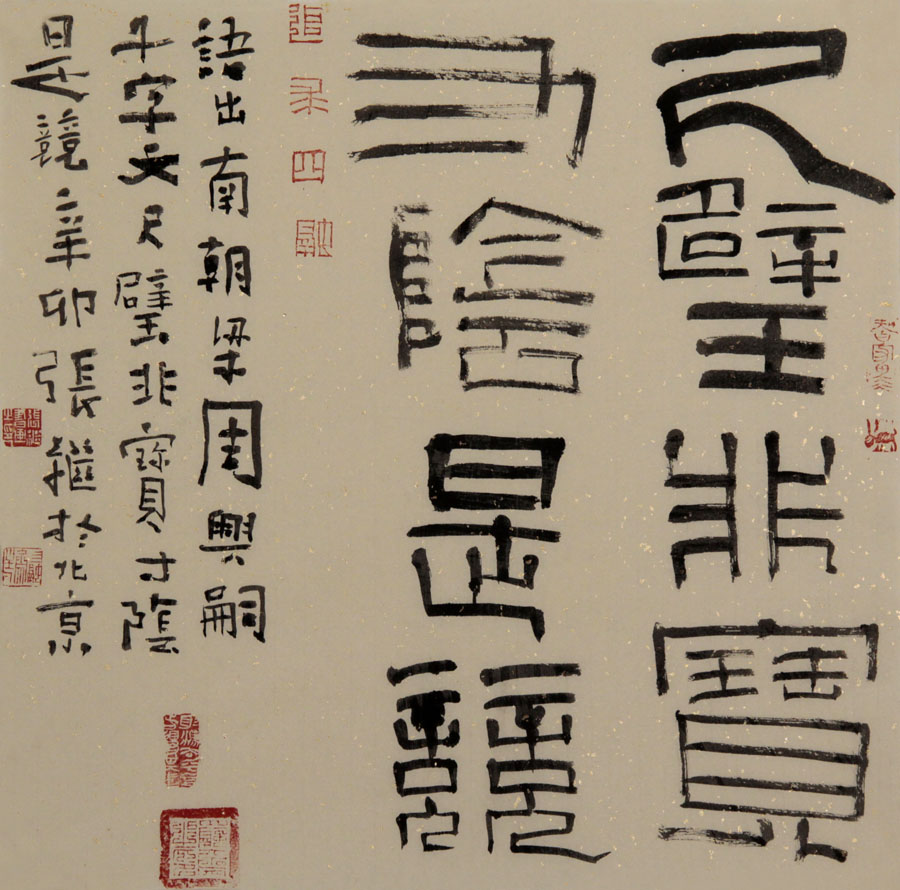 尺璧非寶
寸陰是競
語出南朝梁周興嗣
千字文尺璧非寶寸陰
是競辛卯張繼於北京